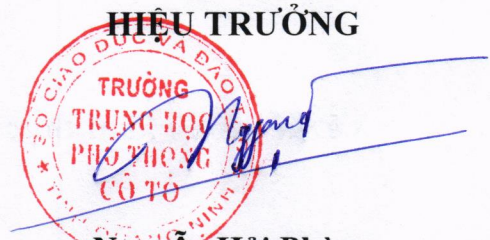 HIỆU TRƯỞNG
SỞ GIÁO DỤC VÀ ĐÀO T
TRƯỜNG
TRUNG HỌC
PHỔ THÔNG
CÔ TÔ
NINH
Hải